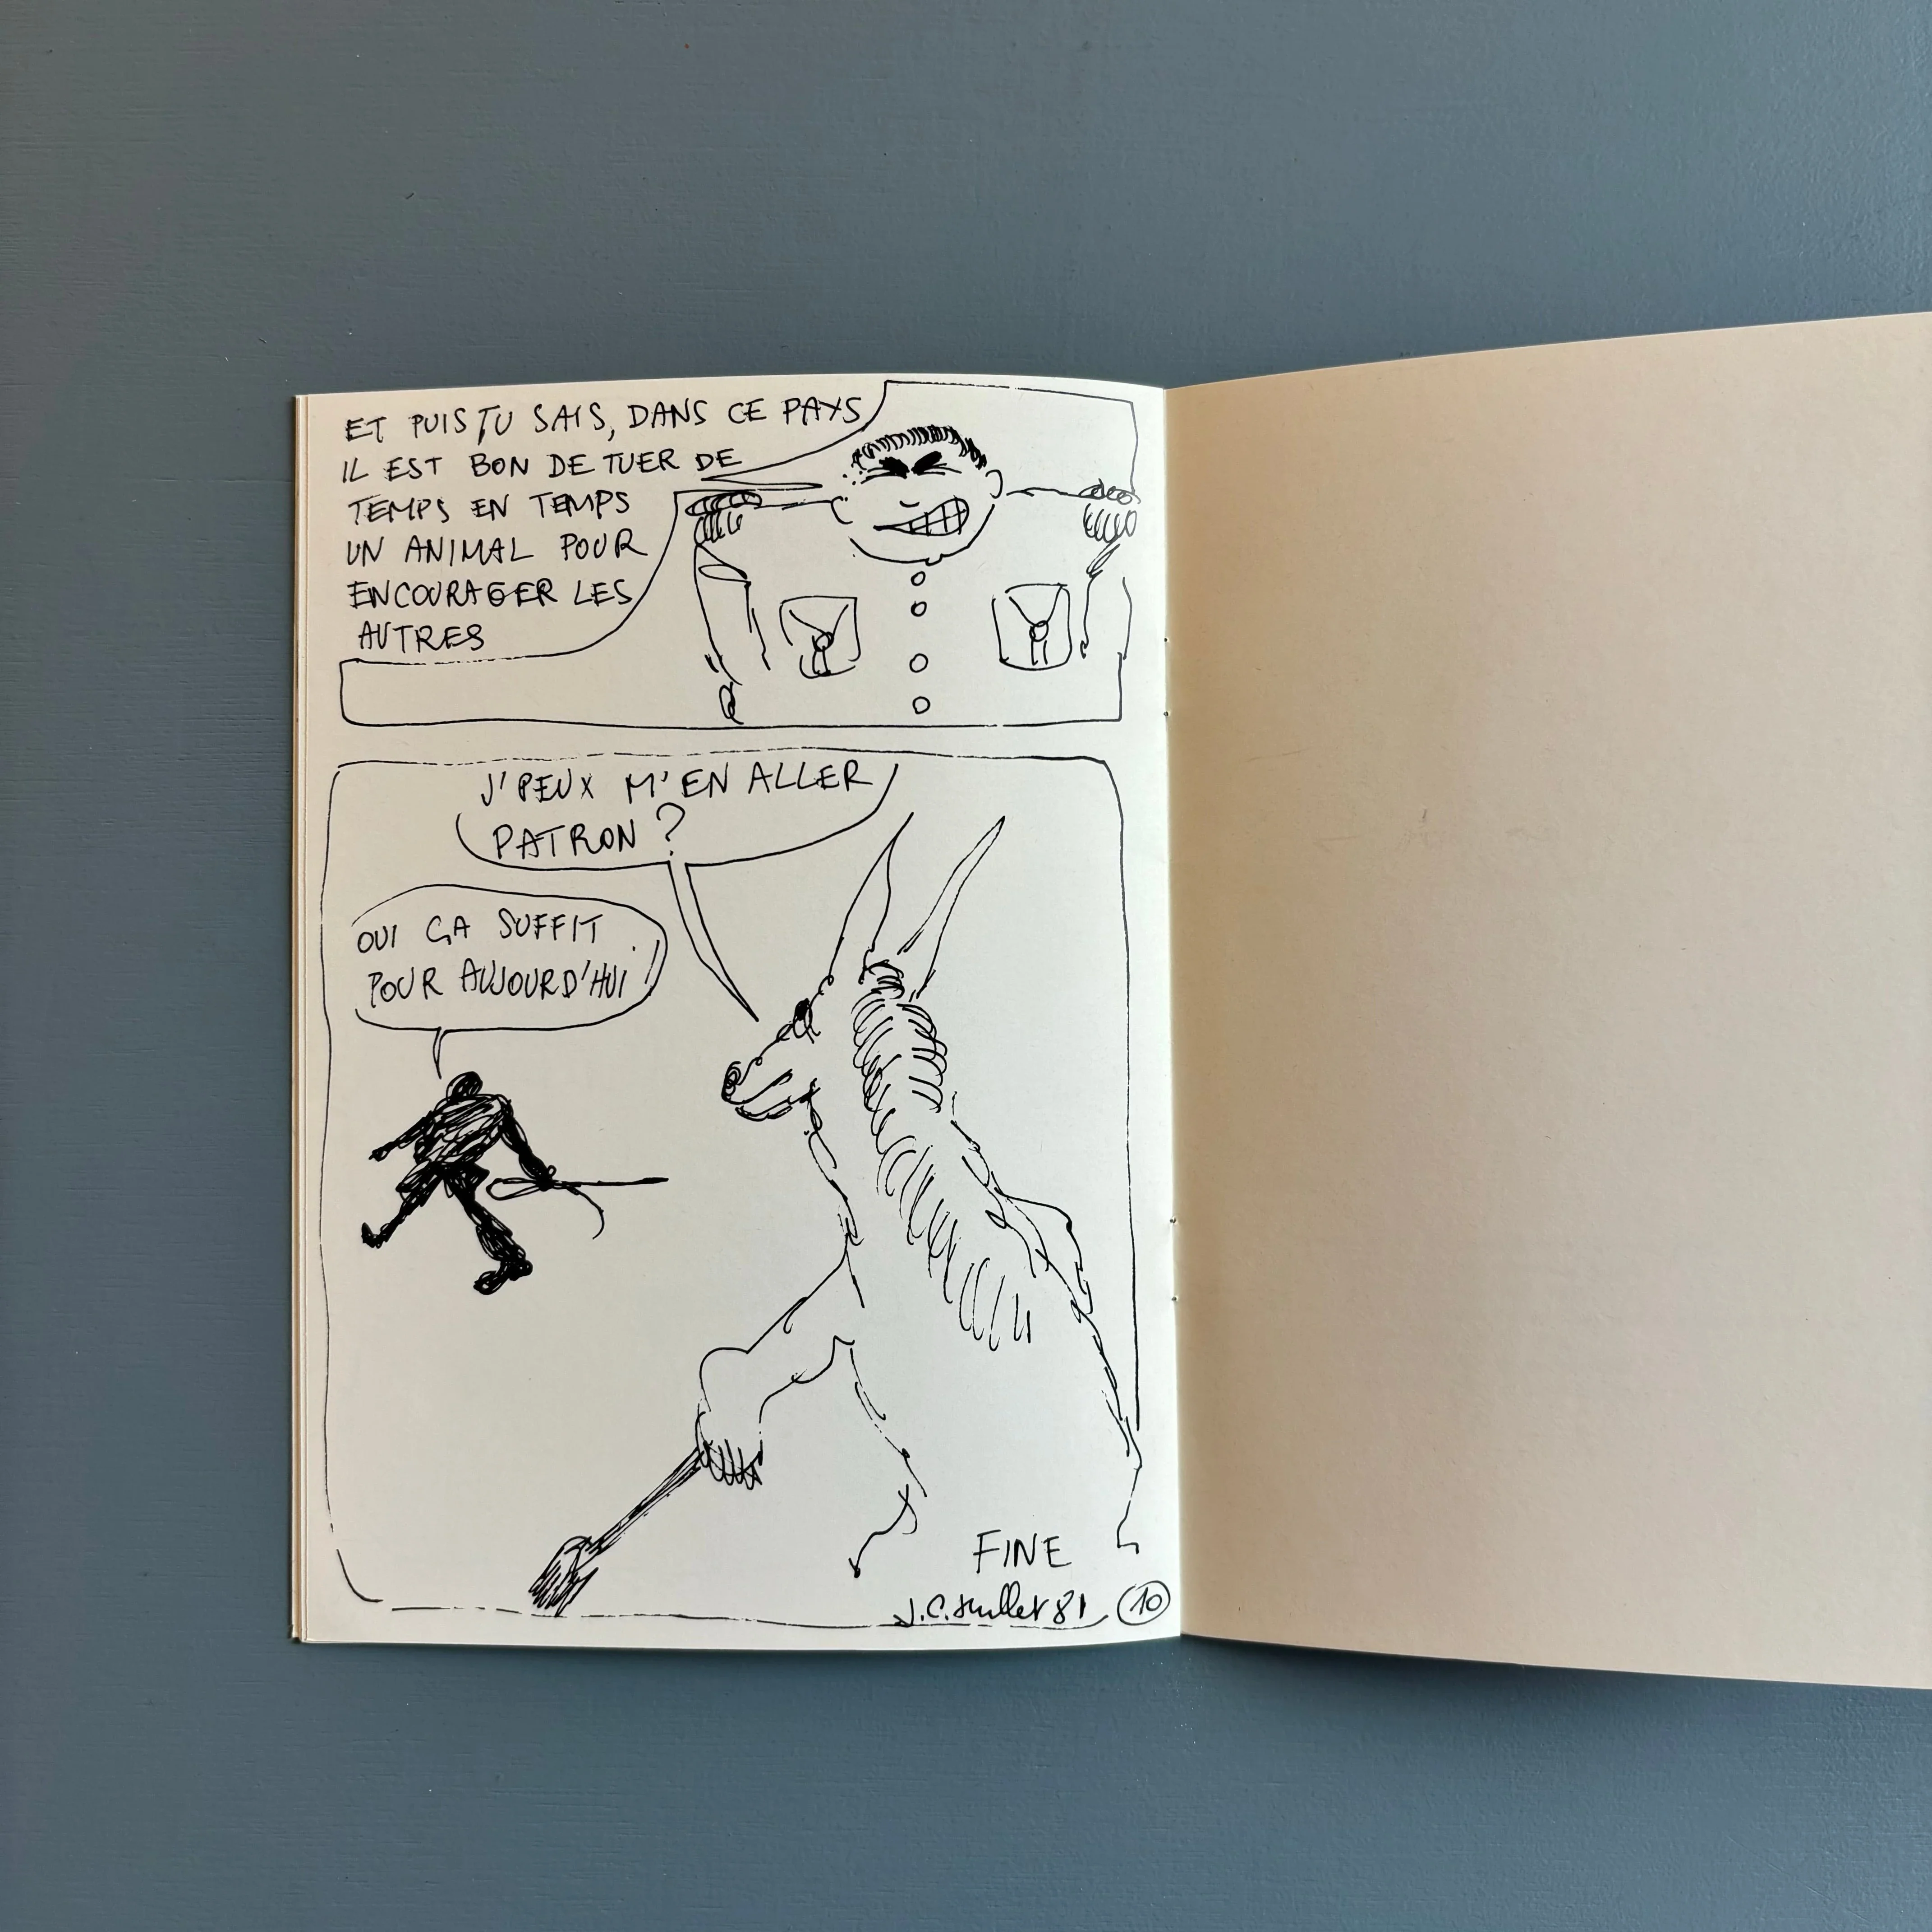 ET PUIS TU SAIS, DANS CE PAYS
IL EST BON DE TUER DE
TEMPS EN TEMPS
UN ANIMAL POUR
ENCOURAGER LES
AUTRES
J'PEUX M'EN ALLER
PATRON ?
OUI ÇA SUFFIT
POUR AUJOURD'HUI !
FINE
J.C. 81
10